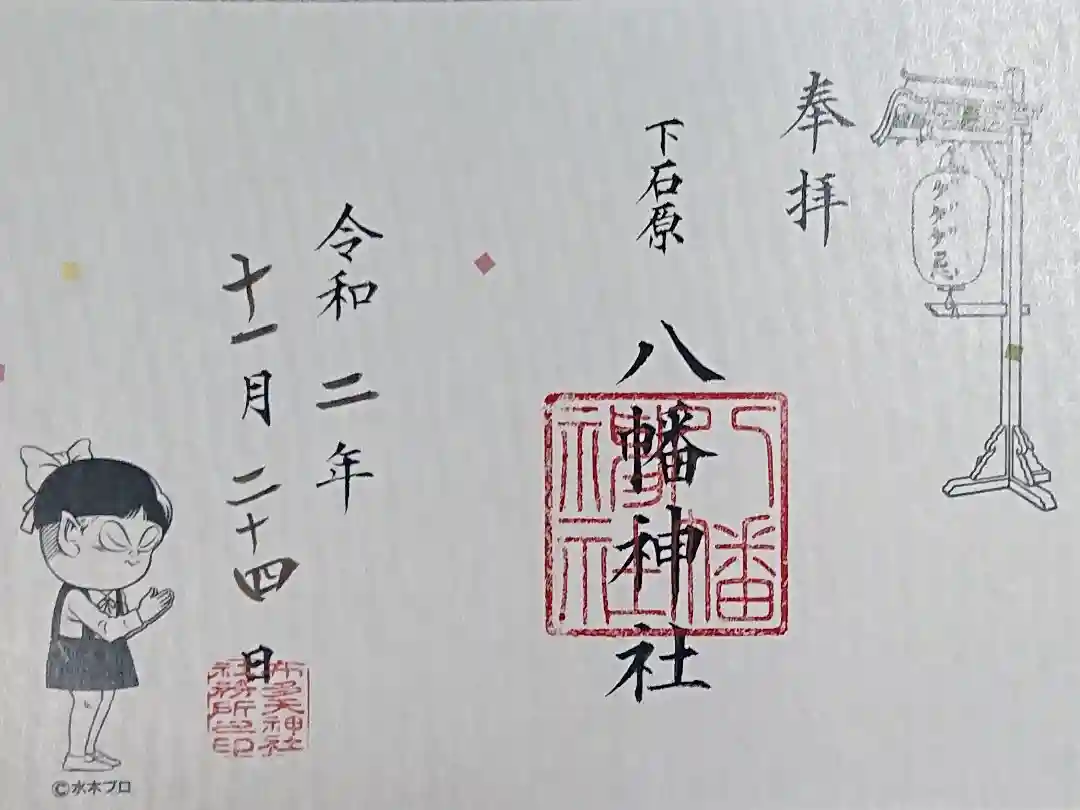 奉拝
ゲゲゲ忌
下石原
八幡神社
八幡神社
令和二年
十一月二十四日
布多天神社
社務所之印
©水木プロ